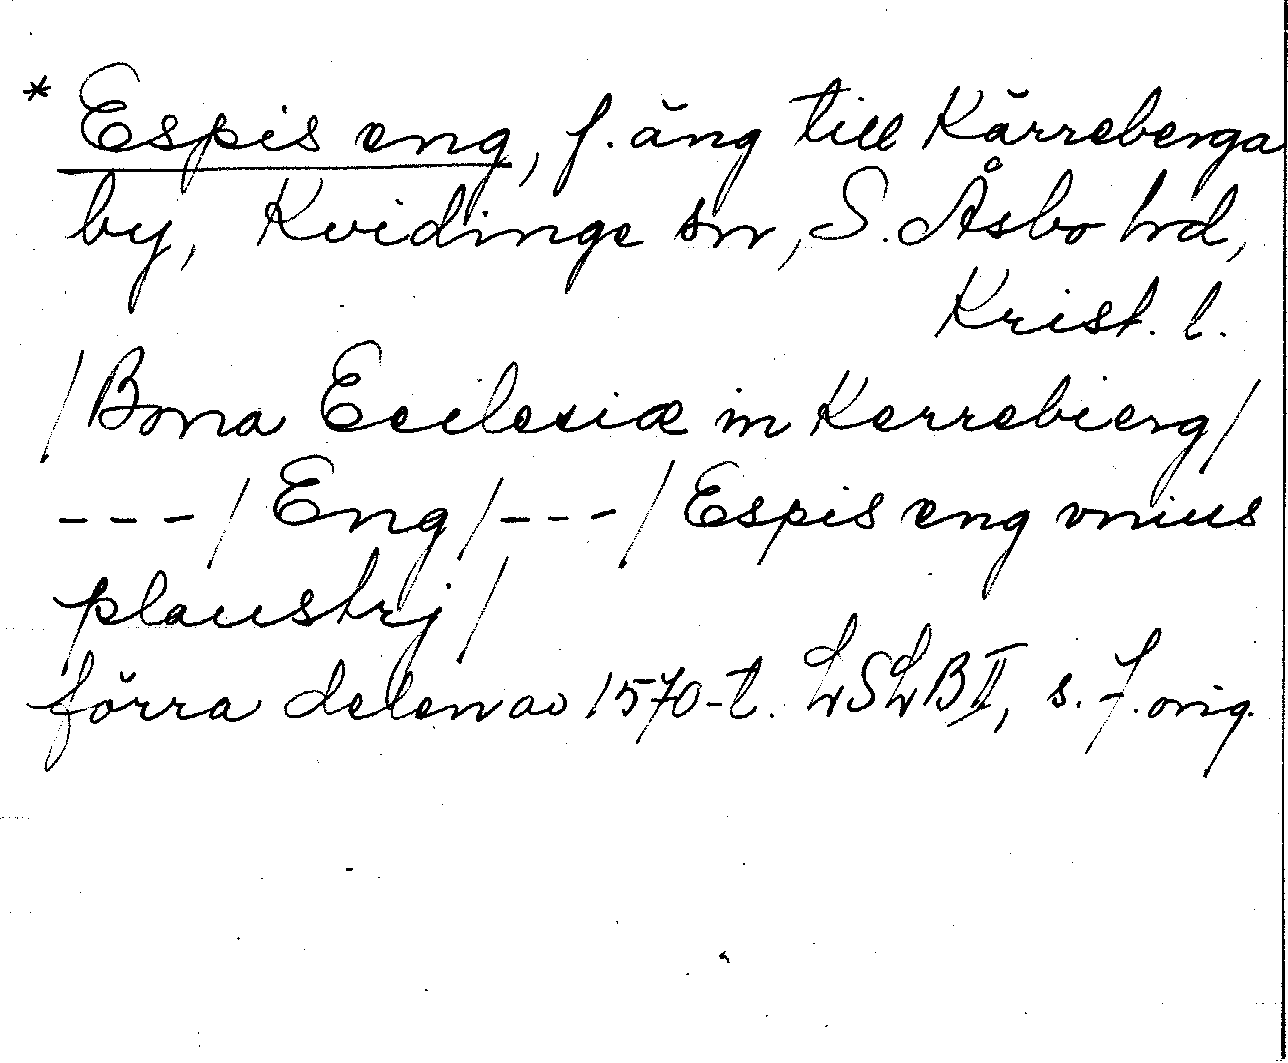 * Espis eng, f. äng till Kärreberga
by, Kvidinge sn, S. Åsbo hd,
Krist. l.
/Bona Ecclesiæ in Kerrebierg/
---/Eng/---/Espis eng vnius
plaustrj/
förra delen av 1570-t. LSLB II, s. 7. orig.